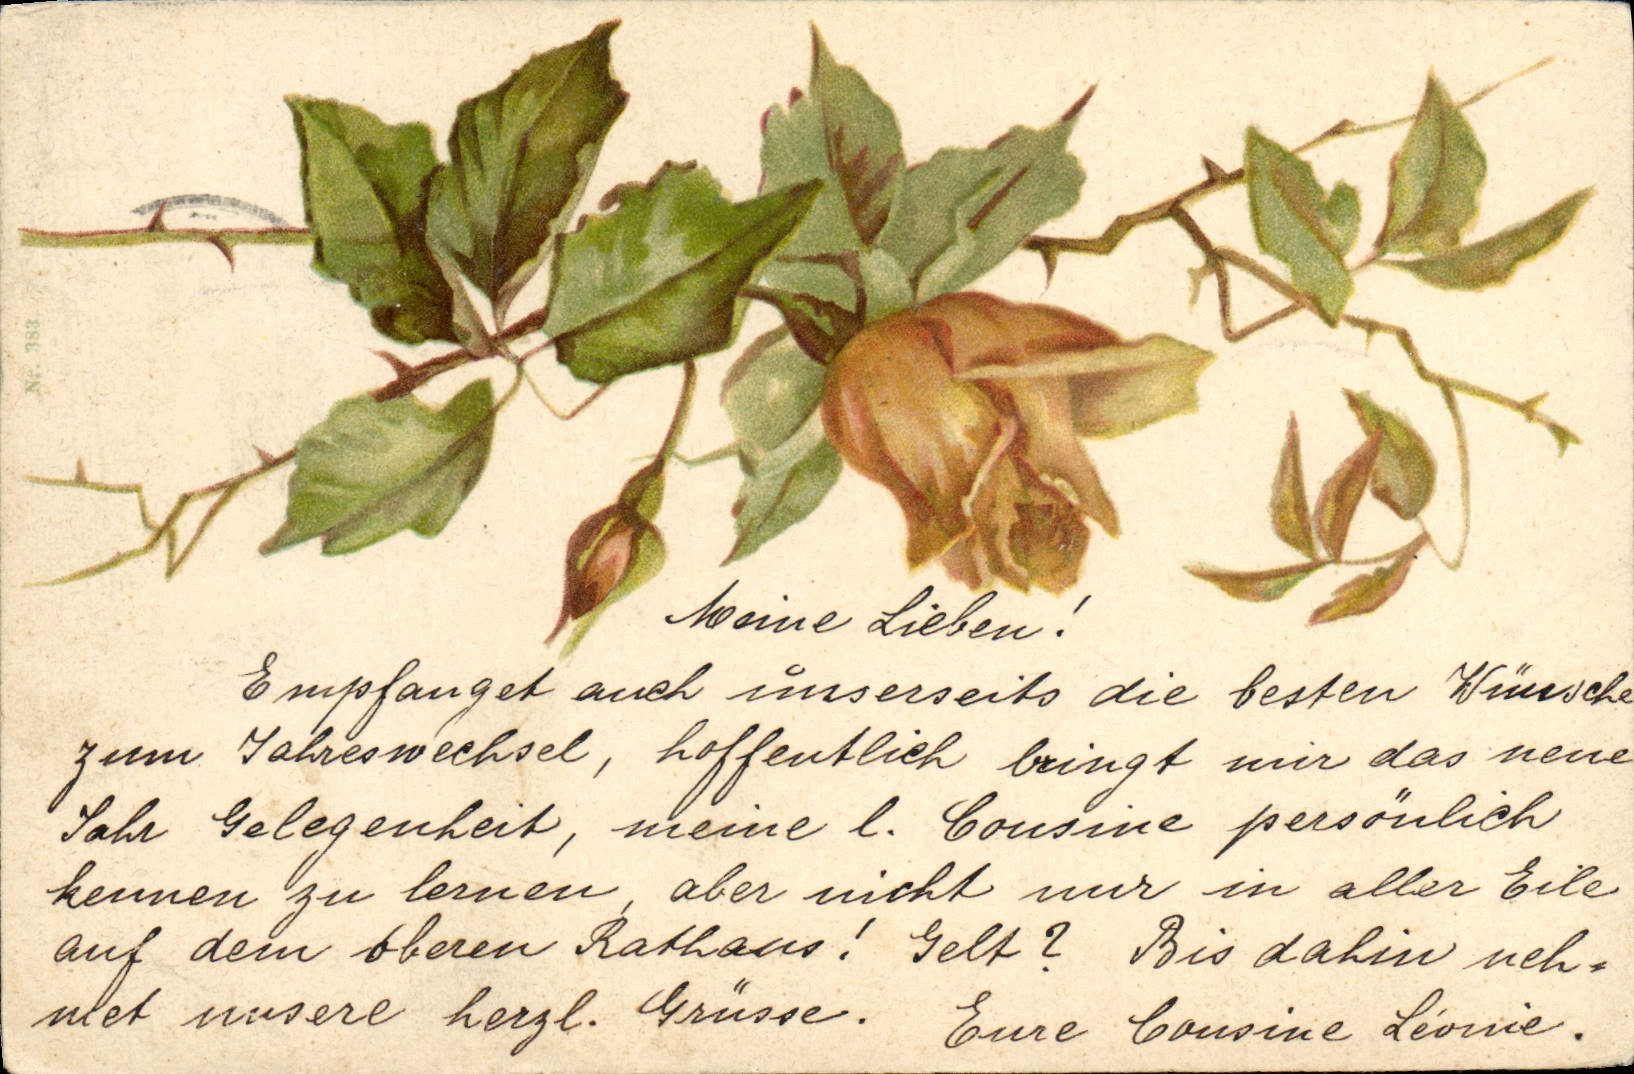 Nr. 383
Meine Lieben!
Empfanget auch unserseits die besten Wünsche
zum Jahreswechsel, hoffentlich bringt mir das neue
Jahr Gelegenheit, meine l. Cousine persönlich
kennen zu lernen, aber nicht nur in aller Eile
auf dem oberen Rathaus! Gelt? Bis dahin neh-
met unsere herzl. Grüsse. Eure Cousine Léonie.